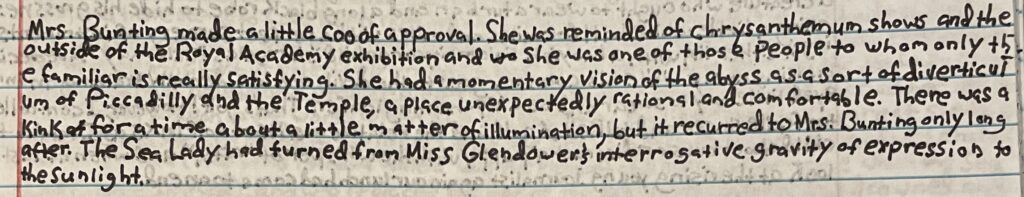 Mrs. Bunting made a little coo of approval. She was reminded of chrysanthemum shows and the
outside of the Royal Academy exhibition and She was one of those people to whom only th
e familiar is really satisfying. She had a momentary vision of the abyss as a sort of diverticul
um of Piccadilly and the Temple, a place unexpectedly rational and comfortable. There was a
kink for a time about a little matter of illumination, but it recurred to Mrs. Bunting only long
after. The Sea Lady had turned from Miss Glendower's interrogative gravity of expression to
the sunlight.